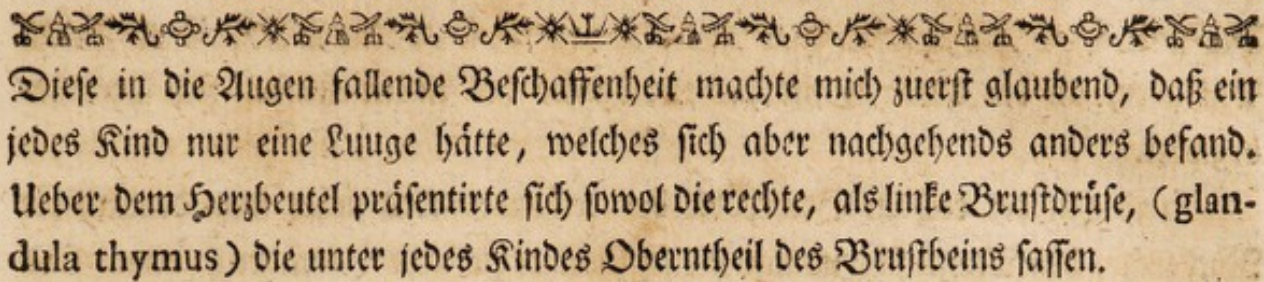 Diese in die Augen fallende Beschaffenheit machte mich zuerst glaubend, daß ein
jedes Kind nur eine Luuge hätte, welches sich aber nachgehends anders befand.
Ueber dem Herzbeutel präsentirte sich sowol die rechte, als linke Brustdrüse, (glan-
dula thymus) die unter jedes Kindes Oberntheil des Brustbeins sassen.